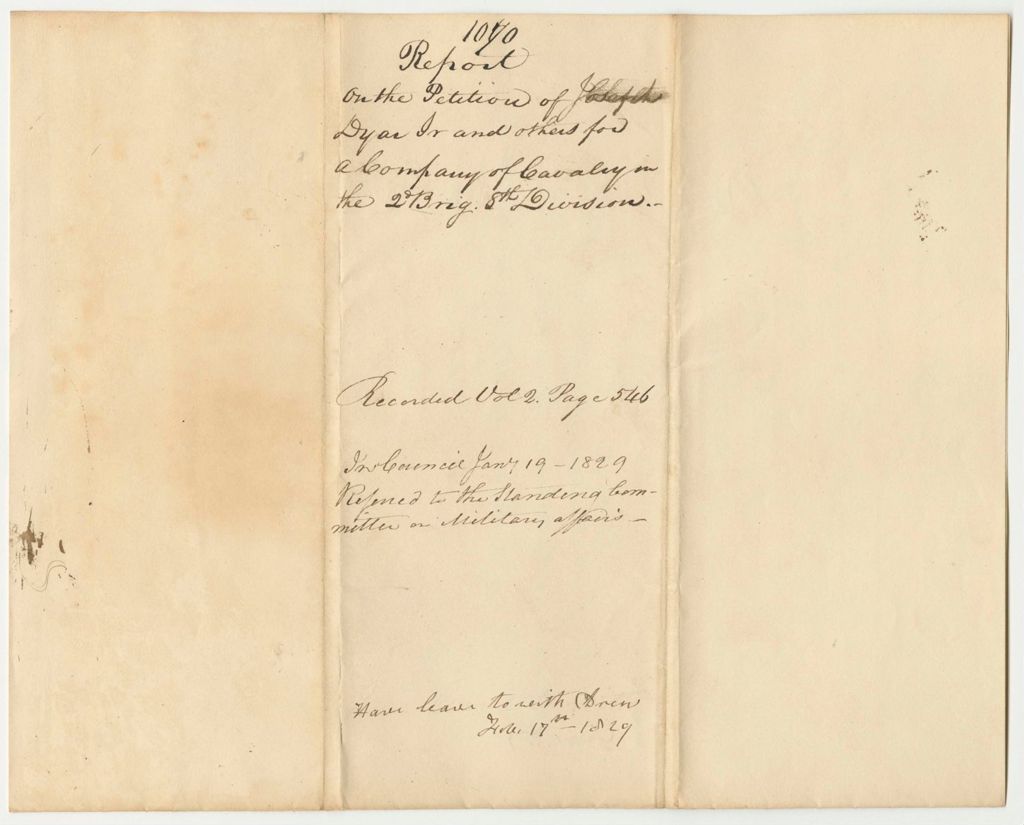 1070
Report
On the Petition of Joseph
Dyar Jr and others for
a Company of Cavalry in
the 2d Brig. 8th Division.-
Recorded Vol 2. Page 546
In Council Jany 19 - 1829
Refered to the Standing Com-
mittee on Military affairs -
Have leave to with Drew
Feb. 17th - 1829